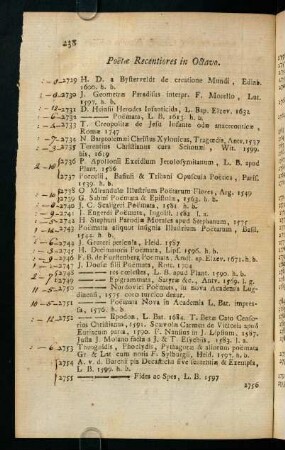 238
Poëtæ Recentiores in Octavo.
2729 H. D. a Bysterveldt de creatione Mundi, Edinb.
1600. h. b.
2730 J. Geometræ Paradisus interpr. F. Morello, Lut.
1597. h. b.
2731 D. Heinsii Herodes Infanticida, L. Bat. Elzev. 1632
2732 Poëmata, L. B. 1613. h. b.
2733 T. Creopolitæ de Jesu Infante odæ anacreontice,
Romæ 1747
2734 N. Bartholomæi Christus Xylonicus, Tragœdia, Antv. 1537
2735 Terentius Christianus cura Schonæi, Wit. 1599.
bis, 1619
2736 P. Apollonii Excidium Jerosolymitanum, L. B. apud
Plant. 1586
2737 Porcelii, Basinii & Tribani Opuscula Poëtica, Paris.
1539. h. b.
2738 O Mirandulæ Illustrium Poëtarum Flores, Arg. 1549
2739 G. Sabini Poëmata & Epistolæ, 1563. h. b.
2740 J. C. Scaligeri Poëmata, 1581. h. b.
2741 J. Engerdi Poëmata, Ingolst. 1582. l. a.
2742 H. Stephani Parodiæ Morales apud Stephanum, 1575
2743 Poëmatia aliquot insignia Illustrium Poëtarum, Basil.
1544. h. b.
2744 J. Gruteri pericula, Heid. 1587
2745 H. Decimatoris Poëmata, Lips. 1596. h. b.
2746 F. B. de Furstenberg Poëmata, Amst. ap. Elzev. 1671. h. b.
2747 J. Dousæ filii Poëmata, Rott. 1704
2748 res cœlestes, L. B. apud Plant. 1590. h. b.
2749 Epigrammata, Satyræ &c., Antv. 1569. l. g.
2750 Nordovici Poëmata, in nova Academia Lugdunensi,
1575. corio turcico deaur.
2751 Poëmata Nova in Academia L. Bat. impressa,
1576. h. b.
2752 Epodon, L. Bat. 1684. T. Bezæ Cato Censorius
Christianus, 1591.
2753 J. & T. Elychii, 1583. l. a.
2754 Theognidis, Phocylidis, Pythagoræ & aliorum poëmata
Gr. & Lat. cum notis F. Sylburgii, Heid. 1597. h. b.
L. B. 1599. h. b.
2755 Fides ac Spes, L. B. 1597
2756